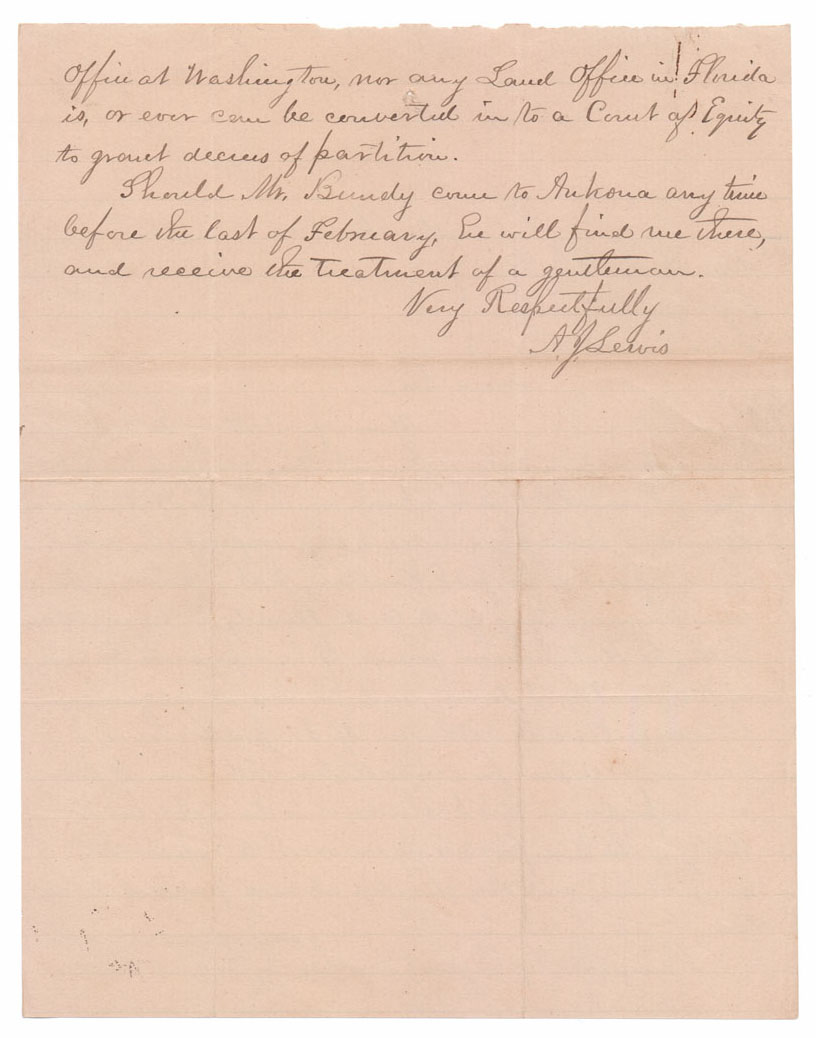 Office at Washington, nor any Land Office in Florida
is, or ever can be converted in to a Court of Equity
to grant decrees of partition.
Should Mr. Bundy come to Ankona any time
before the last of February, he will find me there,
and receive the treatment of a gentleman.
Very Respectfully
A. J. Lewis